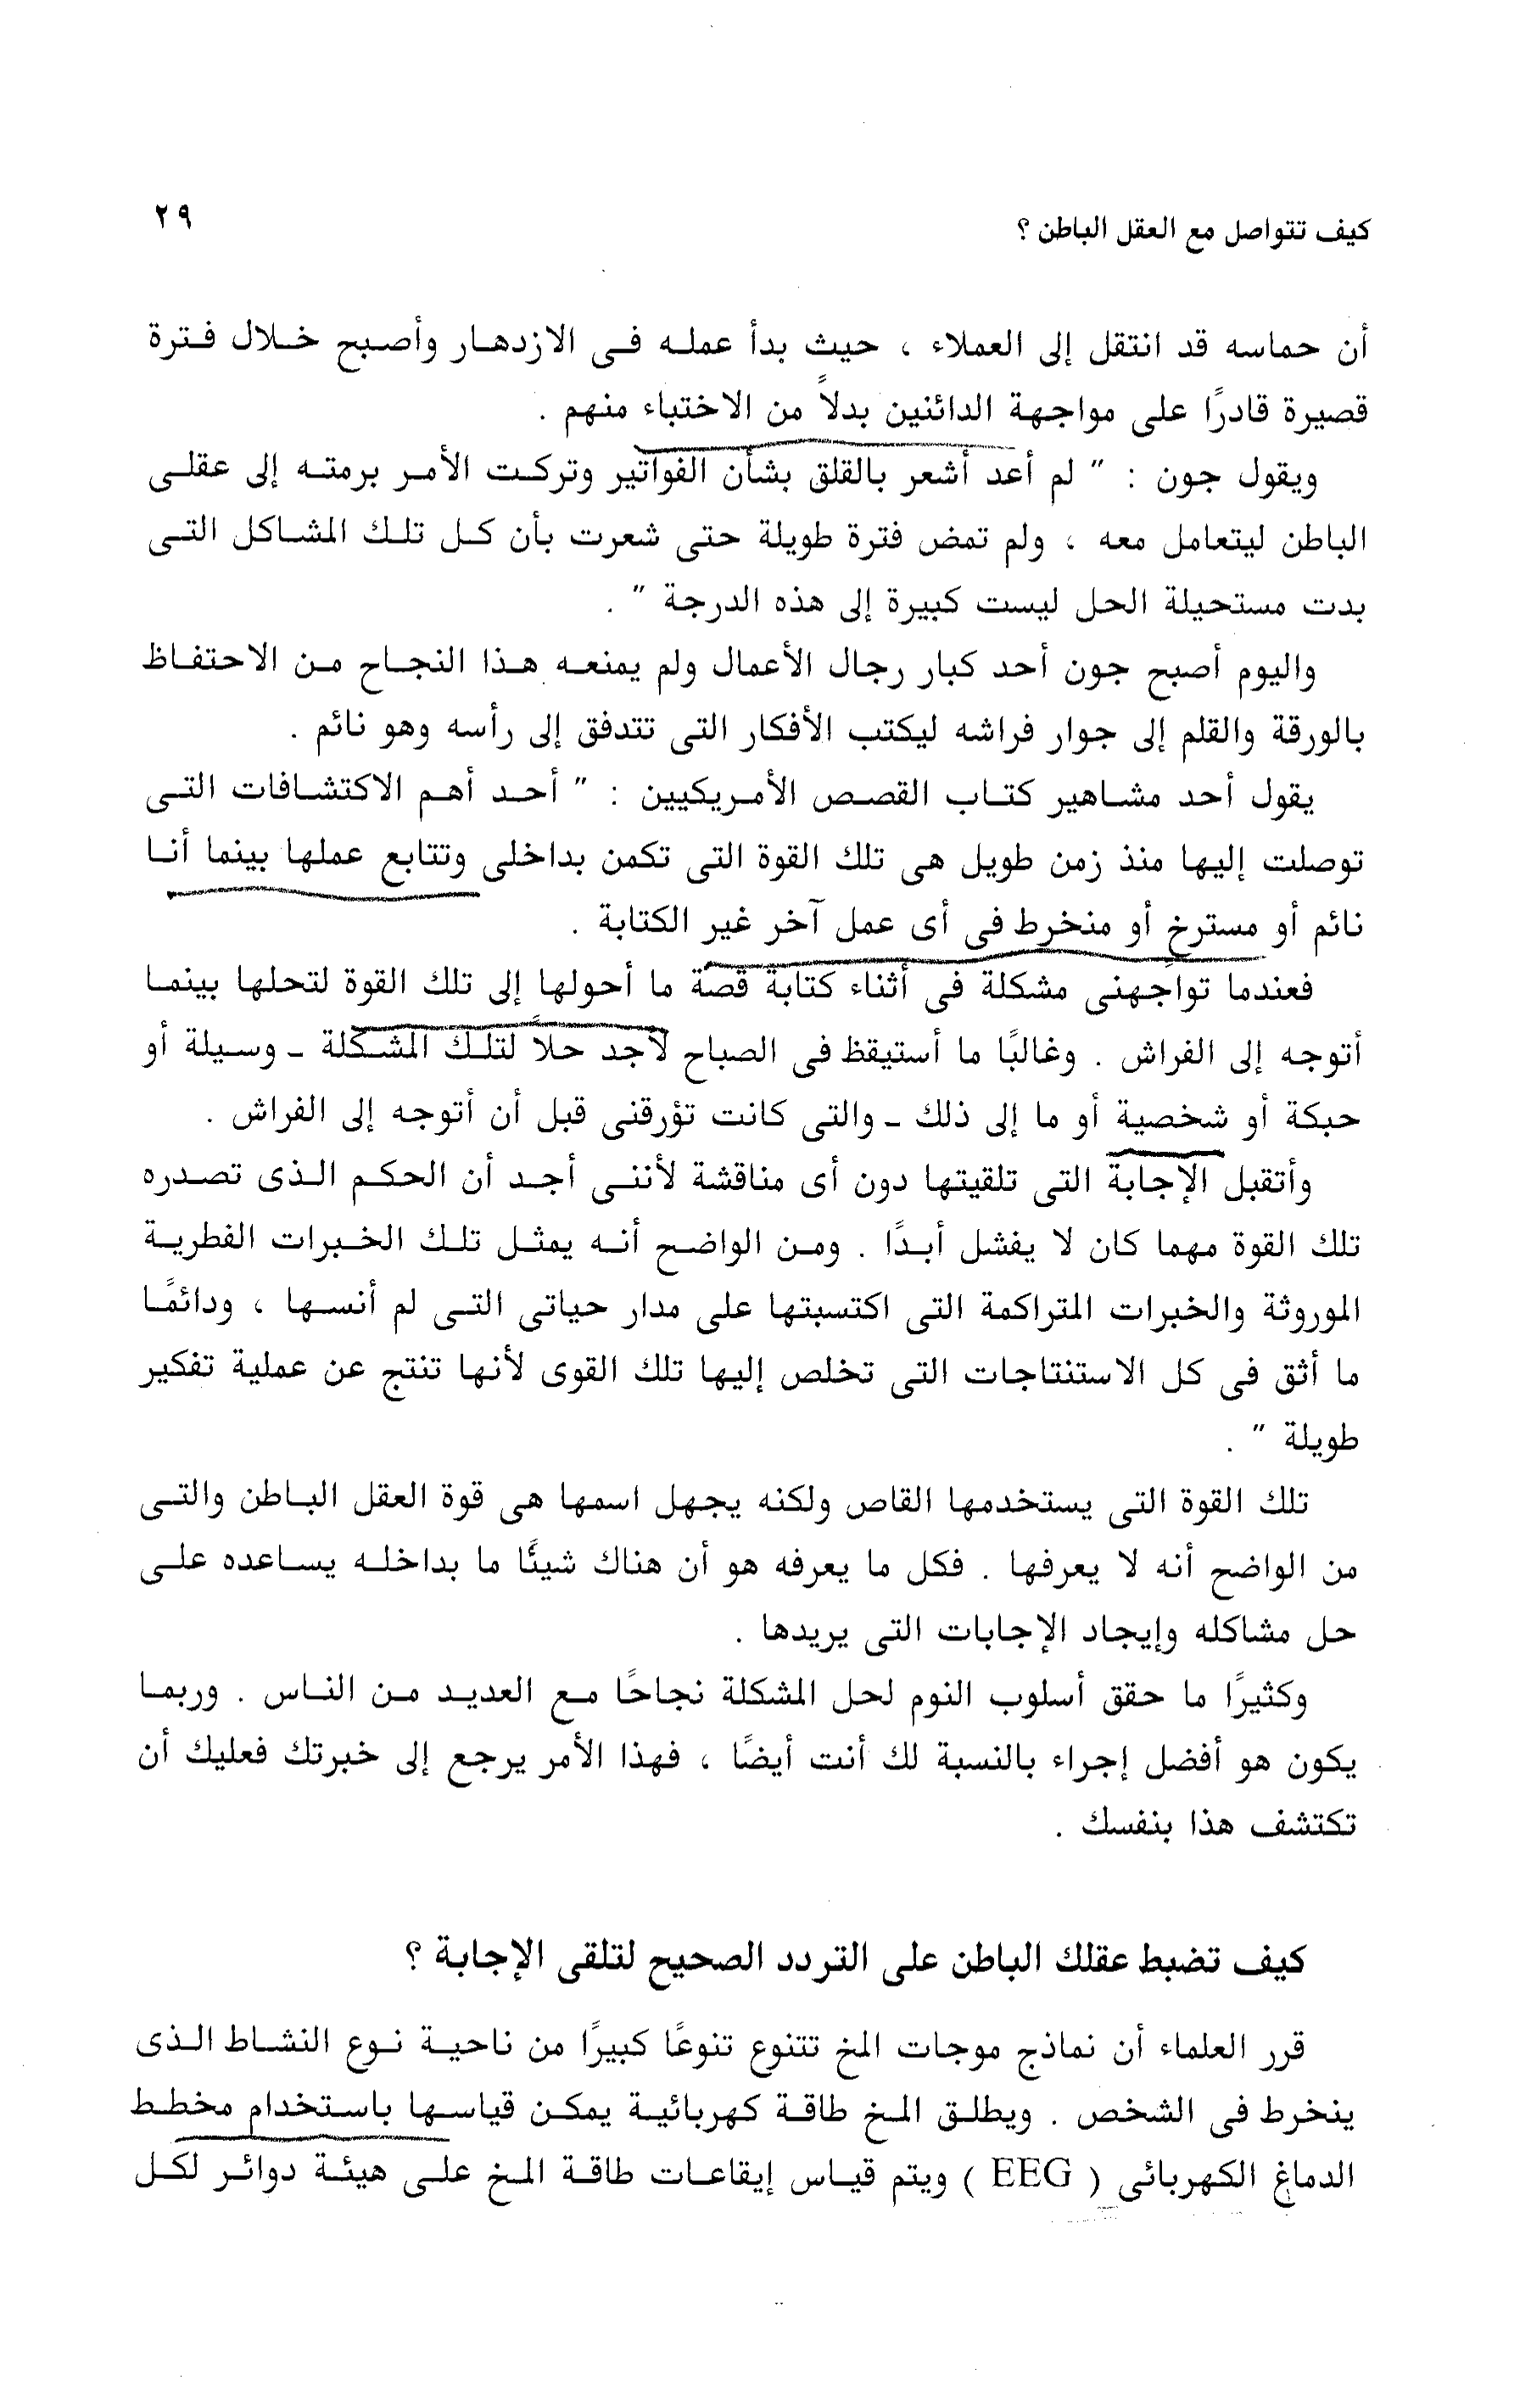 كيف تتواصل مع العقل الباطن ؟
٢٩
أن حماسه قد انتقل إلى العملاء ، حيث بدأ عمله فى الازدهار وأصبح خلال فترة
قصيرة قادرًا على مواجهة الدائنين بدلاً من الاختباء منهم .
ويقول جون : " لم أعد أشعر بالقلق بشأن الفواتير وتركت الأمر برمته إلى عقلى
الباطن ليتعامل معه ، ولم تمض فترة طويلة حتى شعرت بأن كل تلك المشاكل التى
بدت مستحيلة الحل ليست كبيرة إلى هذه الدرجة " .
واليوم أصبح جون أحد كبار رجال الأعمال ولم يمنعه هذا النجاح من الاحتفاظ
بالورقة والقلم إلى جوار فراشه ليكتب الأفكار التى تتدفق إلى رأسه وهو نائم .
يقول أحد مشاهير كتاب القصص الأمريكيين : " أحد أهم الاكتشافات التى
توصلت إليها منذ زمن طويل هى تلك القوة التى تكمن بداخلى وتتابع عملها بينما أنا
نائم أو مسترخٍ أو منخرط فى أى عمل آخر غير الكتابة .
فعندما تواجهنى مشكلة فى أثناء كتابة قصة ما أحولها إلى تلك القوة لتحلها بينما
أتوجه إلى الفراش . وغالبًا ما أستيقظ فى الصباح لأجد حلاً لتلك المشكلة - وسيلة أو
حبكة أو شخصية أو ما إلى ذلك - والتى كانت تؤرقنى قبل أن أتوجه إلى الفراش .
وأتقبل الإجابة التى تلقيتها دون أى مناقشة لأننى أجد أن الحكم الذى تصدره
تلك القوة مهما كان لا يفشل أبدًا . ومن الواضح أنه يمثل تلك الخبرات الفطرية
الموروثة والخبرات المتراكمة التى اكتسبتها على مدار حياتى التى لم أنسها ، ودائمًا
ما أثق فى كل الاستنتاجات التى تخلص إليها تلك القوى لأنها تنتج عن عملية تفكير
طويلة " .
تلك القوة التى يستخدمها القاص ولكنه يجهل اسمها هى قوة العقل الباطن والتى
من الواضح أنه لا يعرفها . فكل ما يعرفه هو أن هناك شيئًا ما بداخله يساعده على
حل مشاكله وإيجاد الإجابات التى يريدها .
وكثيرًا ما حقق أسلوب النوم لحل المشكلة نجاحًا مع العديد من الناس . وربما
يكون هو أفضل إجراء بالنسبة لك أنت أيضًا ، فهذا الأمر يرجع إلى خبرتك فعليك أن
تكتشف هذا بنفسك .
كيف تضبط عقلك الباطن على التردد الصحيح لتلقى الإجابة ؟
قرر العلماء أن نماذج موجات المخ تتنوع تنوعًا كبيرًا من ناحية نوع النشاط الذى
ينخرط فى الشخص . ويطلق المخ طاقة كهربائية يمكن قياسها باستخدام مخطط
الدماغ الكهربائى ( EEG ) ويتم قياس إيقاعات طاقة المخ على هيئة دوائر لكل